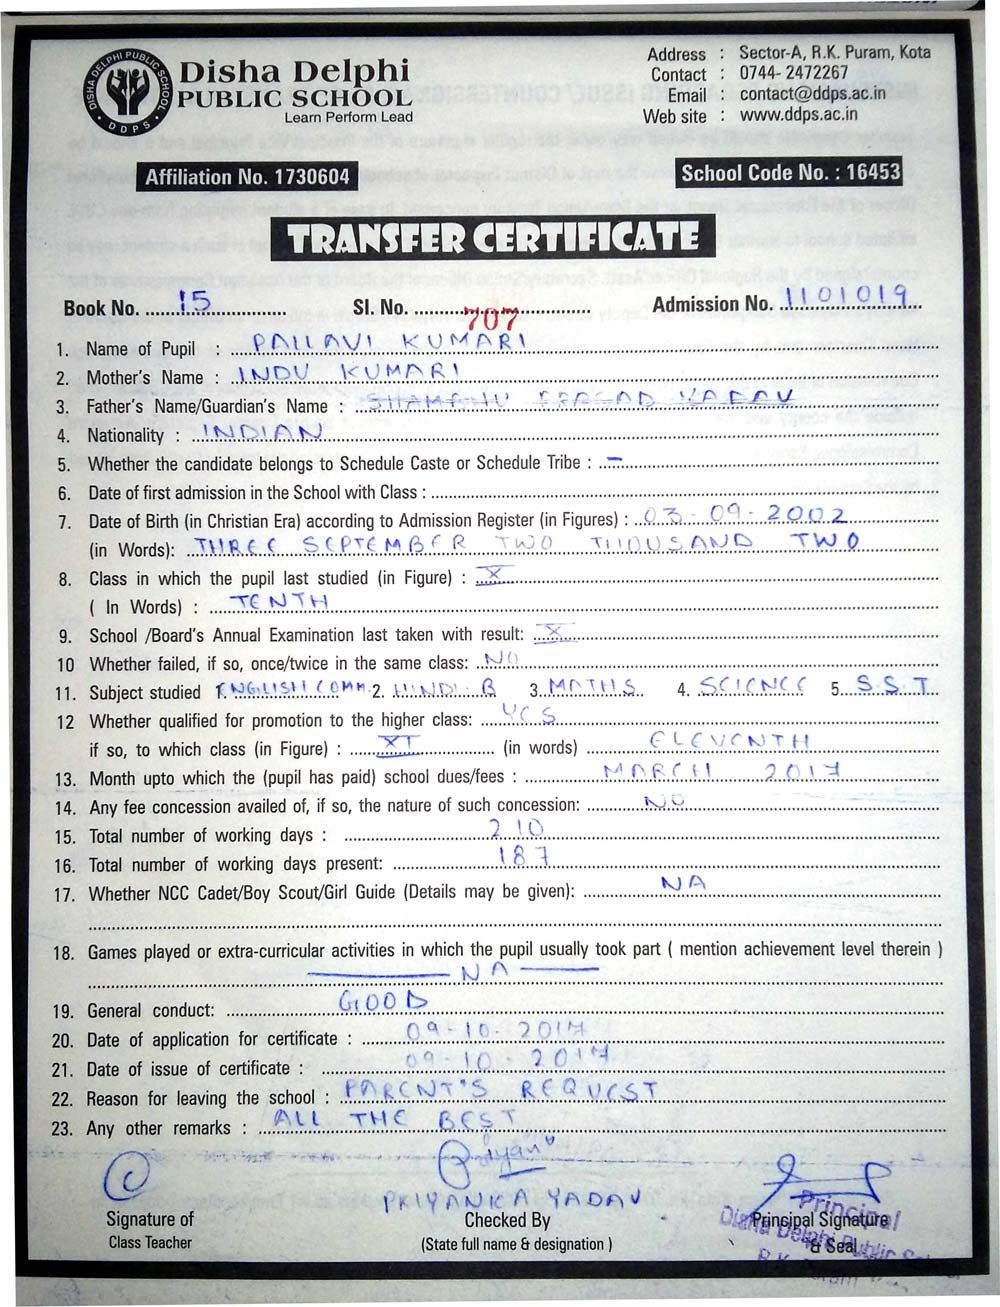 DISHA DELPHI PUBLIC SCHOOL
• DDPS •
Disha Delphi
PUBLIC SCHOOL
Learn Perform Lead
Address : Sector-A, R.K. Puram, Kota
Contact : 0744- 2472267
Email : contact@ddps.ac.in
Web site : www.ddps.ac.in
Affiliation No. 1730604
School Code No. : 16453
TRANSFER CERTIFICATE
Book No. 15 Sl. No. 707 Admission No. 1101019
1. Name of Pupil : PALLAVI KUMARI
2. Mother's Name : INDU KUMARI
3. Father's Name/Guardian's Name : YADAV
4. Nationality : INDIAN
5. Whether the candidate belongs to Schedule Caste or Schedule Tribe : –
6. Date of first admission in the School with Class :
7. Date of Birth (in Christian Era) according to Admission Register (in Figures) : 03-09-2002
(in Words): THREE SEPTEMBER TWO THOUSAND TWO
8. Class in which the pupil last studied (in Figure) : X
( In Words) : TENTH
9. School /Board's Annual Examination last taken with result: X
10 Whether failed, if so, once/twice in the same class: NO
11. Subject studied 1. ENGLISH COMM. 2. HINDI-B 3. MATHS 4. SCIENCE 5. S.S.T.
12 Whether qualified for promotion to the higher class: YES
if so, to which class (in Figure) : XI (in words) ELEVENTH
13. Month upto which the (pupil has paid) school dues/fees : MARCH 2017
14. Any fee concession availed of, if so, the nature of such concession: NO
15. Total number of working days : 210
16. Total number of working days present: 187
17. Whether NCC Cadet/Boy Scout/Girl Guide (Details may be given): NA
18. Games played or extra-curricular activities in which the pupil usually took part ( mention achievement level therein )
NA
19. General conduct: GOOD
20. Date of application for certificate : 09-10-2017
21. Date of issue of certificate : 09-10-2017
22. Reason for leaving the school : PARENT'S REQUEST
23. Any other remarks : ALL THE BEST
PRIYANKA YADAV
Signature of
Class Teacher
Checked By
(State full name & designation )
Principal Signature
& Seal
Principal
Disha Delphi Public